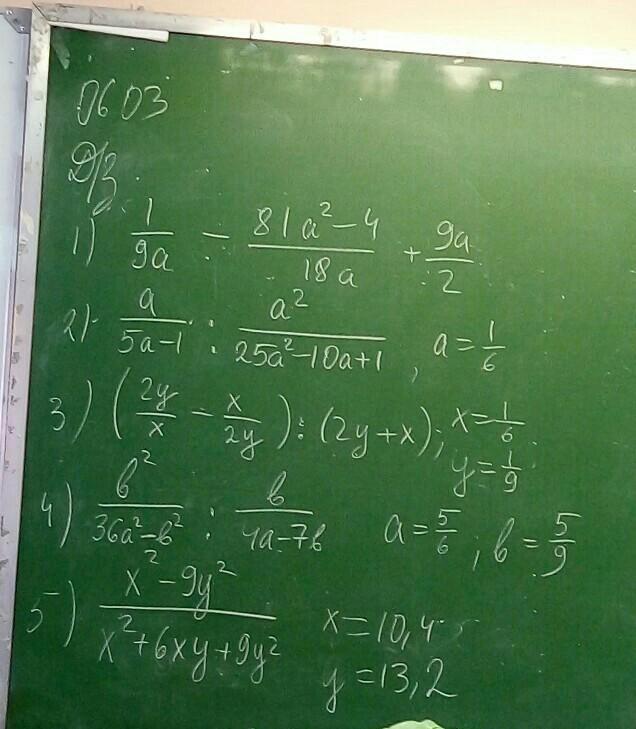 0603
Д/з
1) \frac{1}{9a} - \frac{81a²-4}{18a} + \frac{9a}{2}
2) \frac{a}{5a-1} : \frac{a²}{25a²-10a+1}, a=\frac{1}{6}
3) (\frac{2y}{x} - \frac{x}{2y}) : (2y+x); x=\frac{1}{6}
y=\frac{1}{9}
4) \frac{b²}{36a²-b²} : \frac{b}{4a-7b} a=\frac{5}{6}; b=\frac{5}{9}
5) \frac{x²-9y²}{x²+6xy+9y²} x=10,4
y=13,2